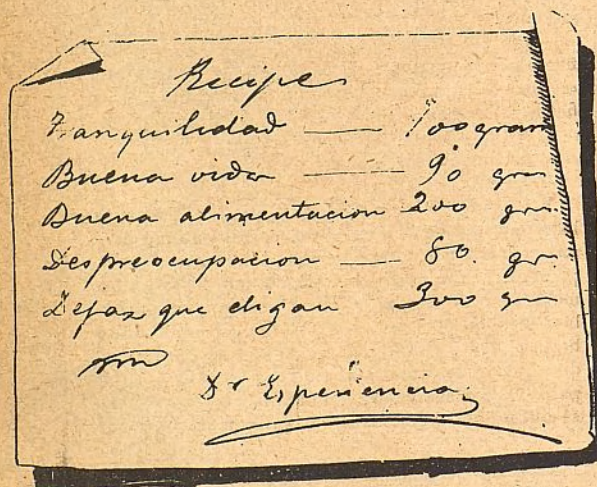 Recipe
Tranquilidad — 100 gram
Buena vida — 90 gr
Buena alimentacion 200 gr
Despreocupacion — 80 gr.
Dejar que digan 300 gr
Dr Esperiencia